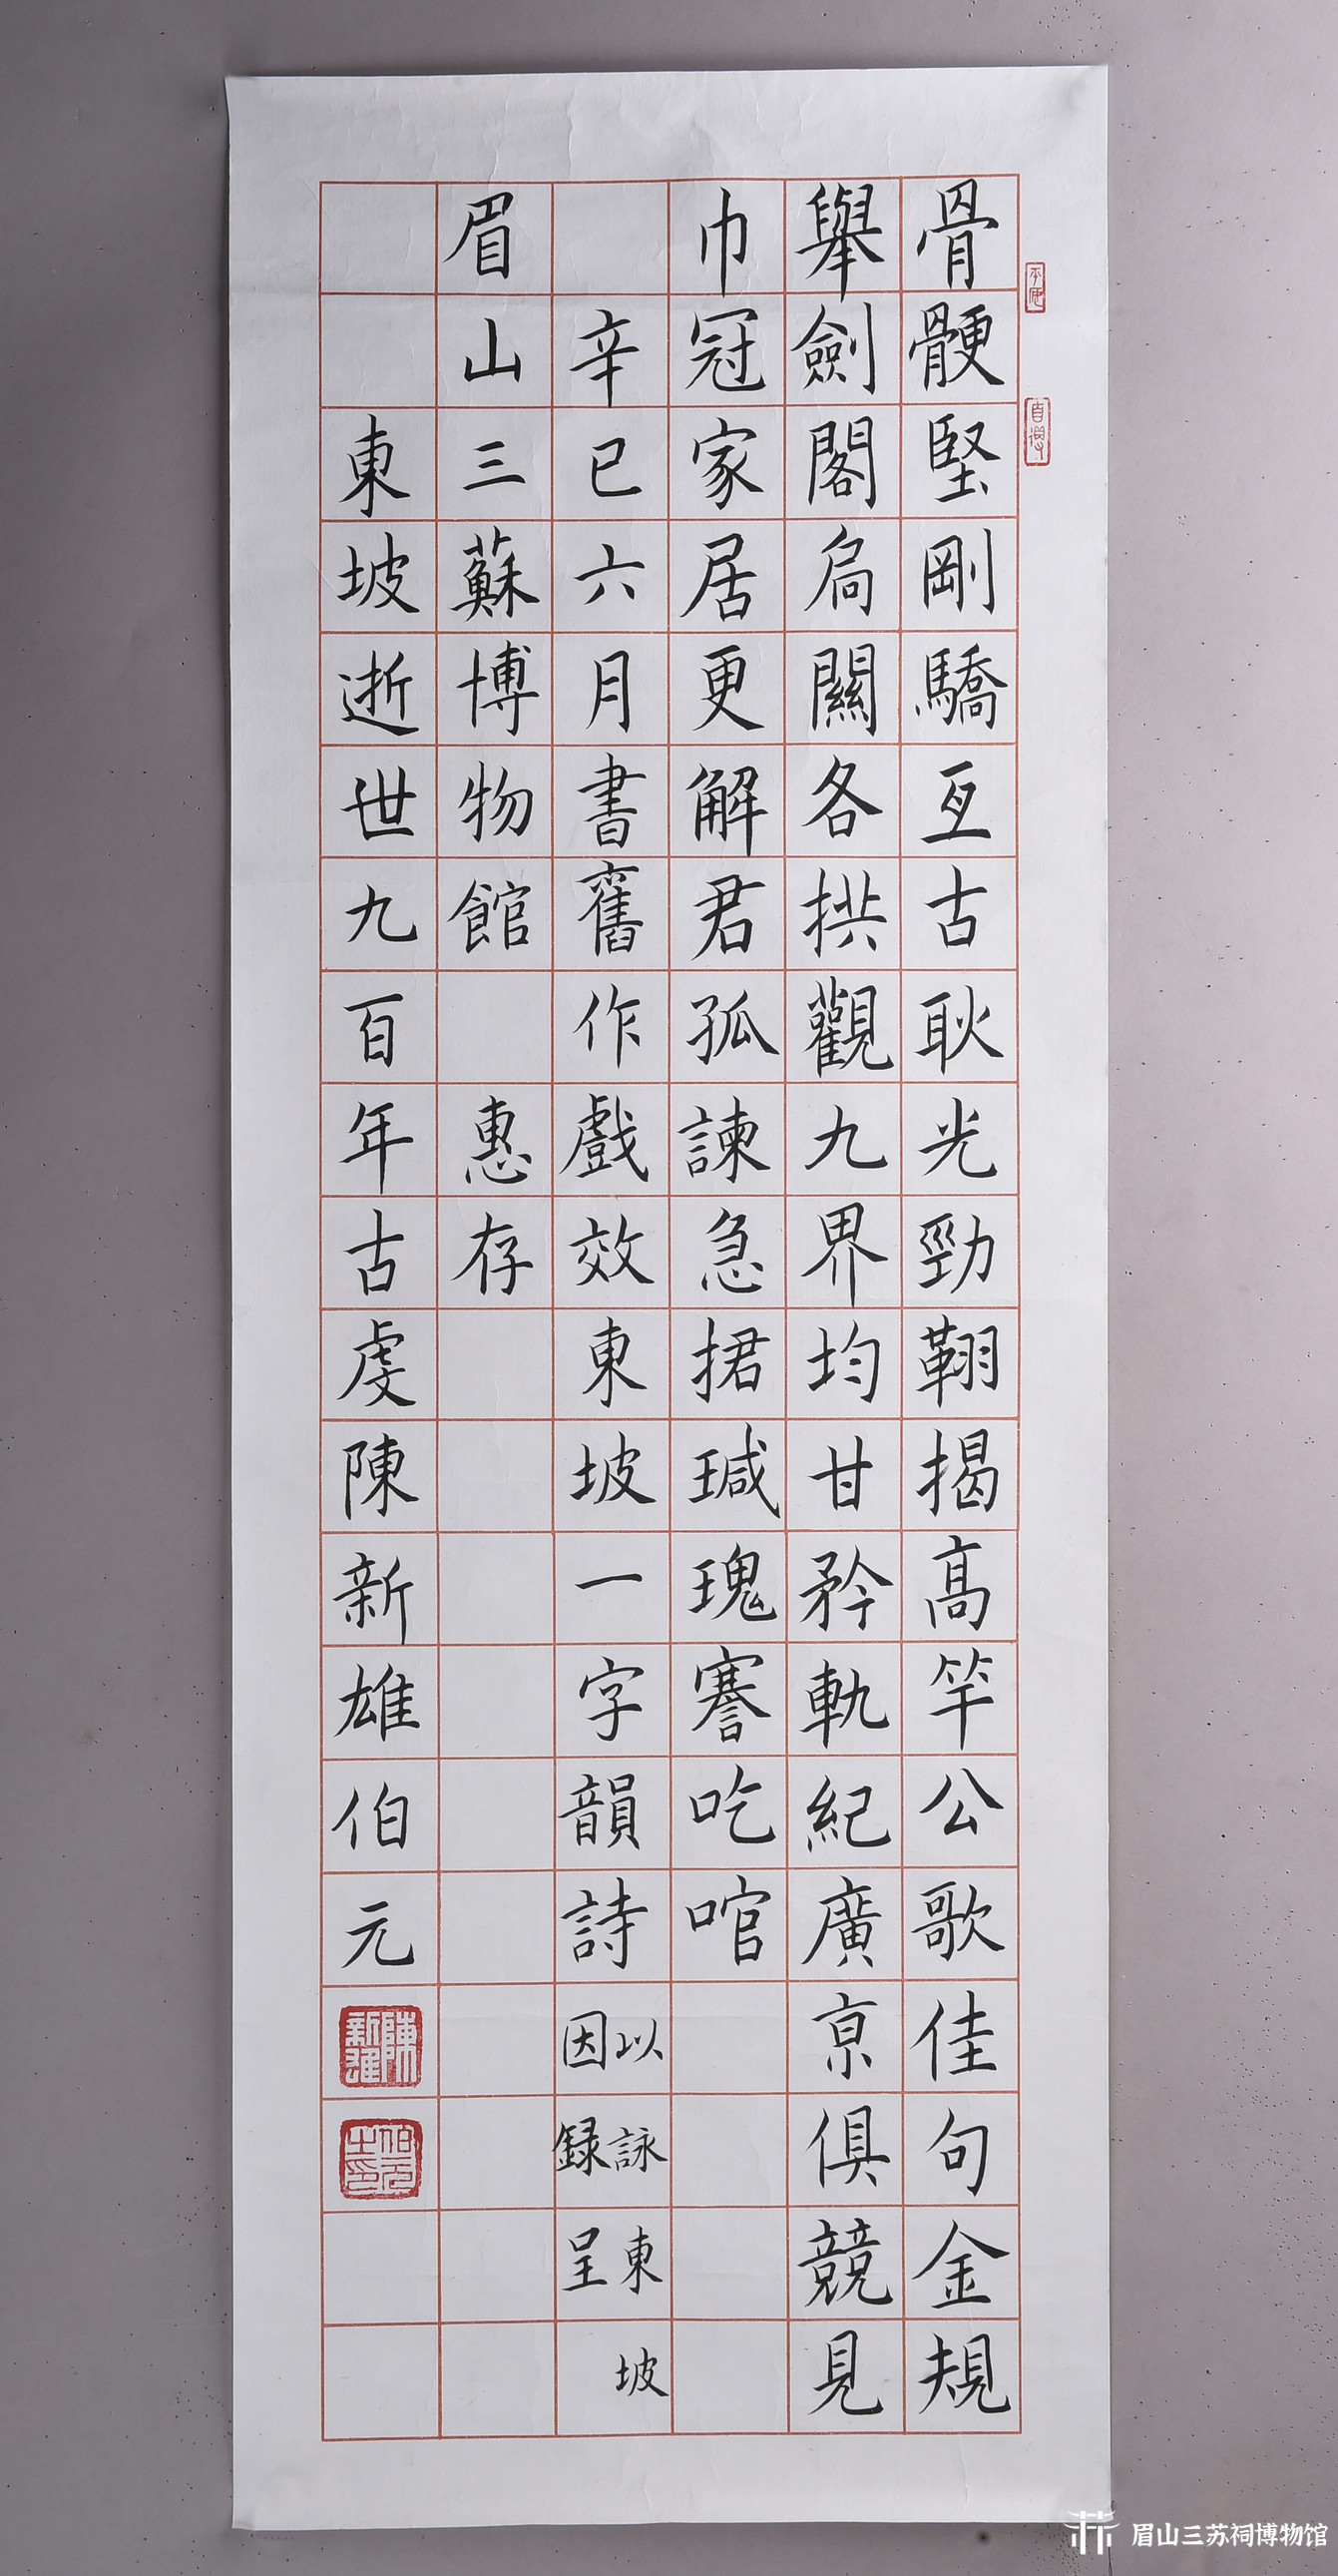 骨骾堅剛驕亙古耿光勁翶揭高竿公歌佳句金規
舉劍閣扃關各拱觀九界均甘矜軌紀廣亰俱競見
巾冠家居更解君孤諫急捃瑊瑰謇吃喧
辛巳六月書舊作戲效東坡一字韻詩以詠東坡
因録呈
眉山三蘇博物館 惠存
東坡逝世九百年古虔陳新雄伯元
陳新雄
伯元之印
眉山三苏祠博物馆